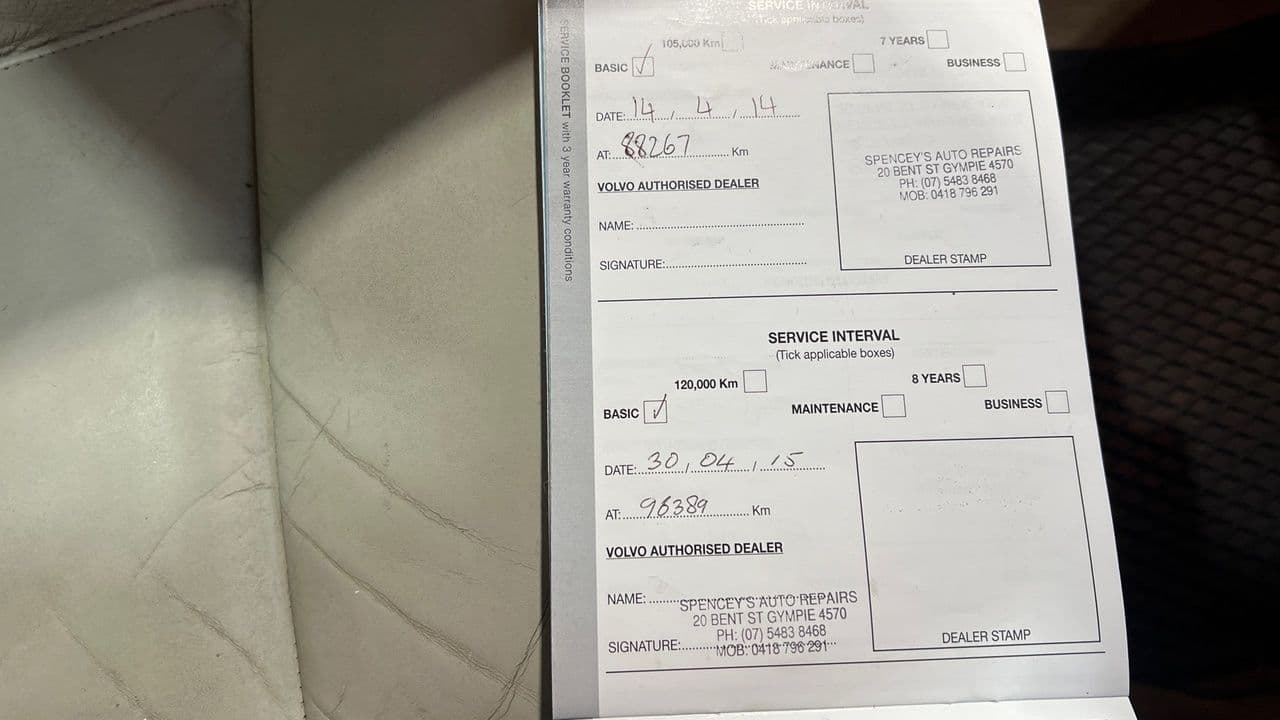 SERVICE BOOKLET with 3 year warranty conditions
SERVICE INTERVAL
(Tick applicable boxes)
105,000 Km
7 YEARS
BASIC ✓
MAINTENANCE
BUSINESS
DATE: 14 / 4 / 14
AT: 88267 Km
VOLVO AUTHORISED DEALER
NAME:
SIGNATURE:
SPENCEY'S AUTO REPAIRS
20 BENT ST GYMPIE 4570
PH: (07) 5483 8468
MOB: 0418 796 291
DEALER STAMP
SERVICE INTERVAL
(Tick applicable boxes)
120,000 Km
8 YEARS
BASIC ✓
MAINTENANCE
BUSINESS
DATE: 30 / 04 / 15
AT: 96389 Km
VOLVO AUTHORISED DEALER
NAME:
SPENCEY'S AUTO REPAIRS
20 BENT ST GYMPIE 4570
PH: (07) 5483 8468
SIGNATURE:
MOB: 0418 796 291
DEALER STAMP